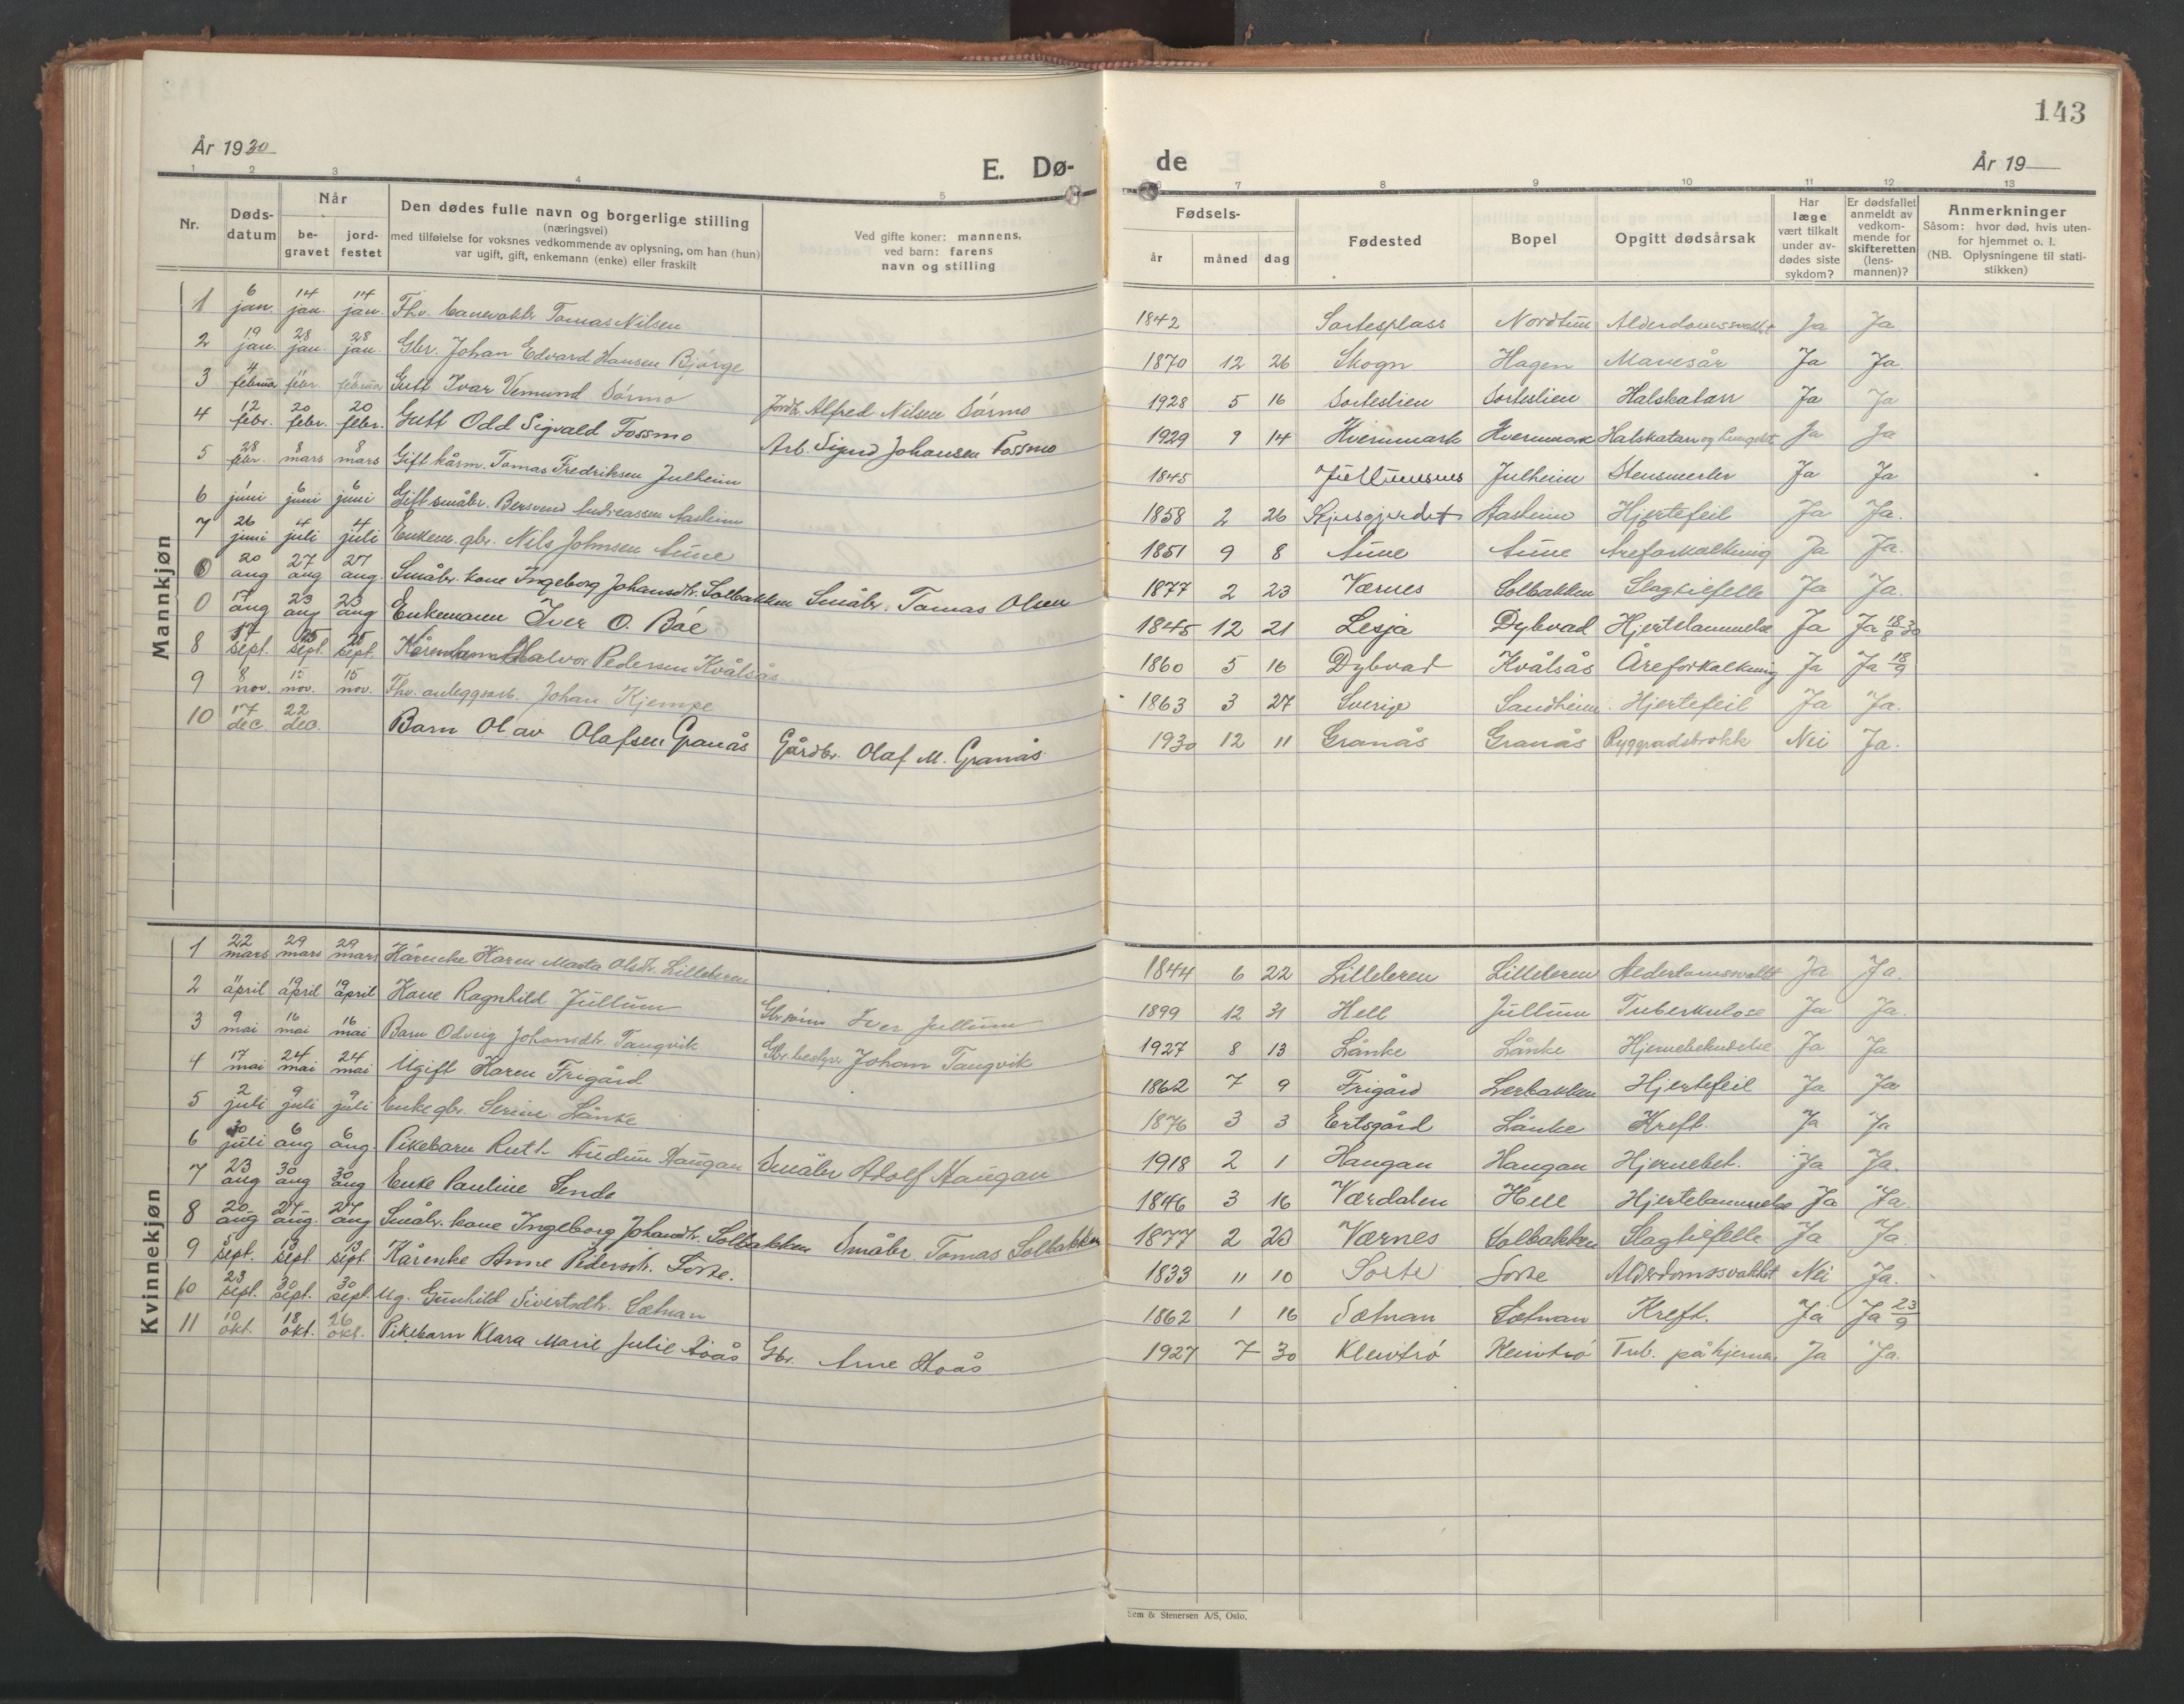 143
År 1930
E. Dø-
de
År 19
1 2 3 4 5 6 7 8 9 10 11 12 13
Nr. Døds-datum Når be-gravet jord-festet Den dødes fulle navn og borgerlige stilling (næringsvei) med tilføielse for voksnes vedkommende av oplysning, om han (hun) var ugift, gift, enkemann (enke) eller fraskilt Ved gifte koner: mannens, ved barn: farens navn og stilling Fødsels- år måned dag Fødested Bopel Opgitt dødsårsak Har læge vært tilkalt under av-dødes siste sykdom? Er dødsfallet anmeldt av vedkom-mende for skifteretten (lens-mannen)? Anmerkninger Såsom: hvor død, hvis uten-for hjemmet o. l. (NB. Oplysningene til stati-stikken)
Mannkjøn
1 6 jan. 14 jan. 14 jan. Fhv. banevokter Tomas Nilsen 1842 Sortesplass Nordtun Alderdomssvakht Ja Ja
2 19 jan. 28 jan. 28 jan. Gbr. Johan Edvard Hansen Bjørge 1870 12 26 Skogn Hagen Mavesår Ja Ja
3 4 februar 11 febr. 11 februar Gutt Ivar Vemund Sørmo Jordbr. Alfred Nilsen Sørmo 1928 5 16 Sorteslien Sorteslien Halskatarr Ja Ja
4 12 febr. 20 febr. 20 febr. Gutt Odd Sigvald Fossmo Arb. Sigurd Johansen Fossmo 1929 9 14 Kvernmark Kvernmark Halskatarr og Ja Ja
5 28 febr. 8 mars 8 mars Gift kårm. Tomas Fredriksen Julheim 1845 Jullumsnes Julheim Ja Ja
6 1 juni 6 juni 6 juni Gift småbr. Bersvend Andreassen Aasheim 1858 2 26 Aasheim Hjertefeil Ja Ja.
7 26 juni 4 juli 4 juli Enkem. gbr. Nils Johnsen Aune 1851 9 8 Aune Aune Areforkalkning Ja Ja.
0 20 aug 27 aug 27 aug. Småbr. kone Ingeborg Johansdtr. Solbakken Småbr. Tomas Olsen 1877 2 23 Værnes Solbakken Slagtilfelle Ja Ja.
0 17 aug 23 aug 23 aug Enkemann Iver O. Bøe 1845 12 21 Lesja Dybvad Hjertelammelse Ja Ja 18/8 30
8 17 sept. 25 sept. 25 sept. Kårmann Halvor Pedersen Kvålsås 1860 5 16 Dybvad Kvålsås Åreforkalkning Ja Ja 18/9
9 8 nov. 15 nov. 15 nov. Fhv. anleggsarb. Johan Kjempe 1863 3 27 Sverige Sandheim Hjertefeil Ja Ja.
10 17 dec. 22 dec. Barn Olav Olafsen Granås Gårdbr. Olaf M. Granås 1930 12 11 Granås Granås Ryggradsbrokk Nei Ja.
Kvinnekjøn
1 22 mars 29 mars 29 mars Kårenke Karen Marta Olsdtr. Lilleleren 1844 6 22 Lilleleren Lilleleren Alderdomssvakht Ja Ja.
2 11 april 19 april 19 april Kone Ragnhild Jullum Gbr.sønn Iver Jullum 1899 12 31 Hell Jullum Tuberkulose Ja Ja.
3 9 mai 16 mai 16 mai Barn Odveig Johansdtr. Tangvik Gbr.bestyr Johan Tangvik 1927 8 13 Lånke Lånke Hjernebetendelse Ja Ja
4 17 mai 24 mai 24 mai Ugift Karen Frigård 1862 7 9 Frigård Lerbakken Hjertefeil Ja Ja
5 2 juli 9 juli 9 juli Enke gbr. Serine Lånke 1876 3 3 Ertsgård Lånke Kreft. Ja Ja
6 30 juli 6 aug 6 aug. Pikebarn Rut Audun Haugan Småbr Adolf Haugan 1918 2 1 Haugan Haugan Hjernebet. Ja Ja.
7 23 aug 30 aug 30 aug Enke Pauline Sende 1846 3 16 Værdalen Hell Hjertelammelse Ja Ja.
8 20 aug 27 aug. 27 aug Småbr. kone Ingeborg Johansdtr. Solbakken Småbr. Tomas Solbakken 1877 2 23 Værnes Solbakken Slagtilfelle Ja Ja.
9 5 sept. 13 sept. 13 sept. Kårenke Anne Pedersdtr. Sorte. 1833 11 10 Sorte Sorte Alderdomssvakhet Nei Ja.
10 23 sept. 30 sept. 30 sept. Ug. Gunhild Sivertsdtr. Sætnan 1862 1 16 Sætnan Sætnan Kreft. Ja Ja 23/9
11 10 okt. 18 okt. 26 okt. Pikebarn Klara Marie Julie Hoås Gbr. Arne Hoås 1927 7 30 Kleivtrø Kleivtrø Tub. på hjernen. Ja Ja.
Sem & Stenersen A/S, Oslo.